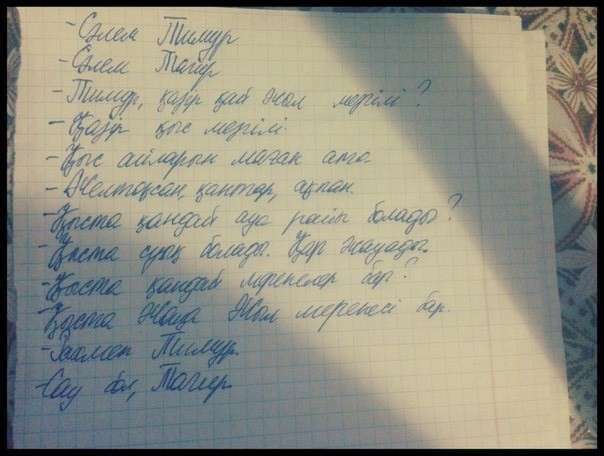 - Сәлем Тимур
- Сәлем Тагир
- Тимур, қазір қай жыл мезгілі?
- Қазір қыс мезгілі
- Қыс айларын маған ата.
- Желтоқсан, қаңтар, ақпан.
- Қыста қандай ауа райы болады?
- Қыста суық болады. Қар жауады.
- Қыста қандай мерекелер бар?
- Қыста Жаңа Жыл мерекесі бар.
- Рахмет Тимур.
- Сау бол, Тагир